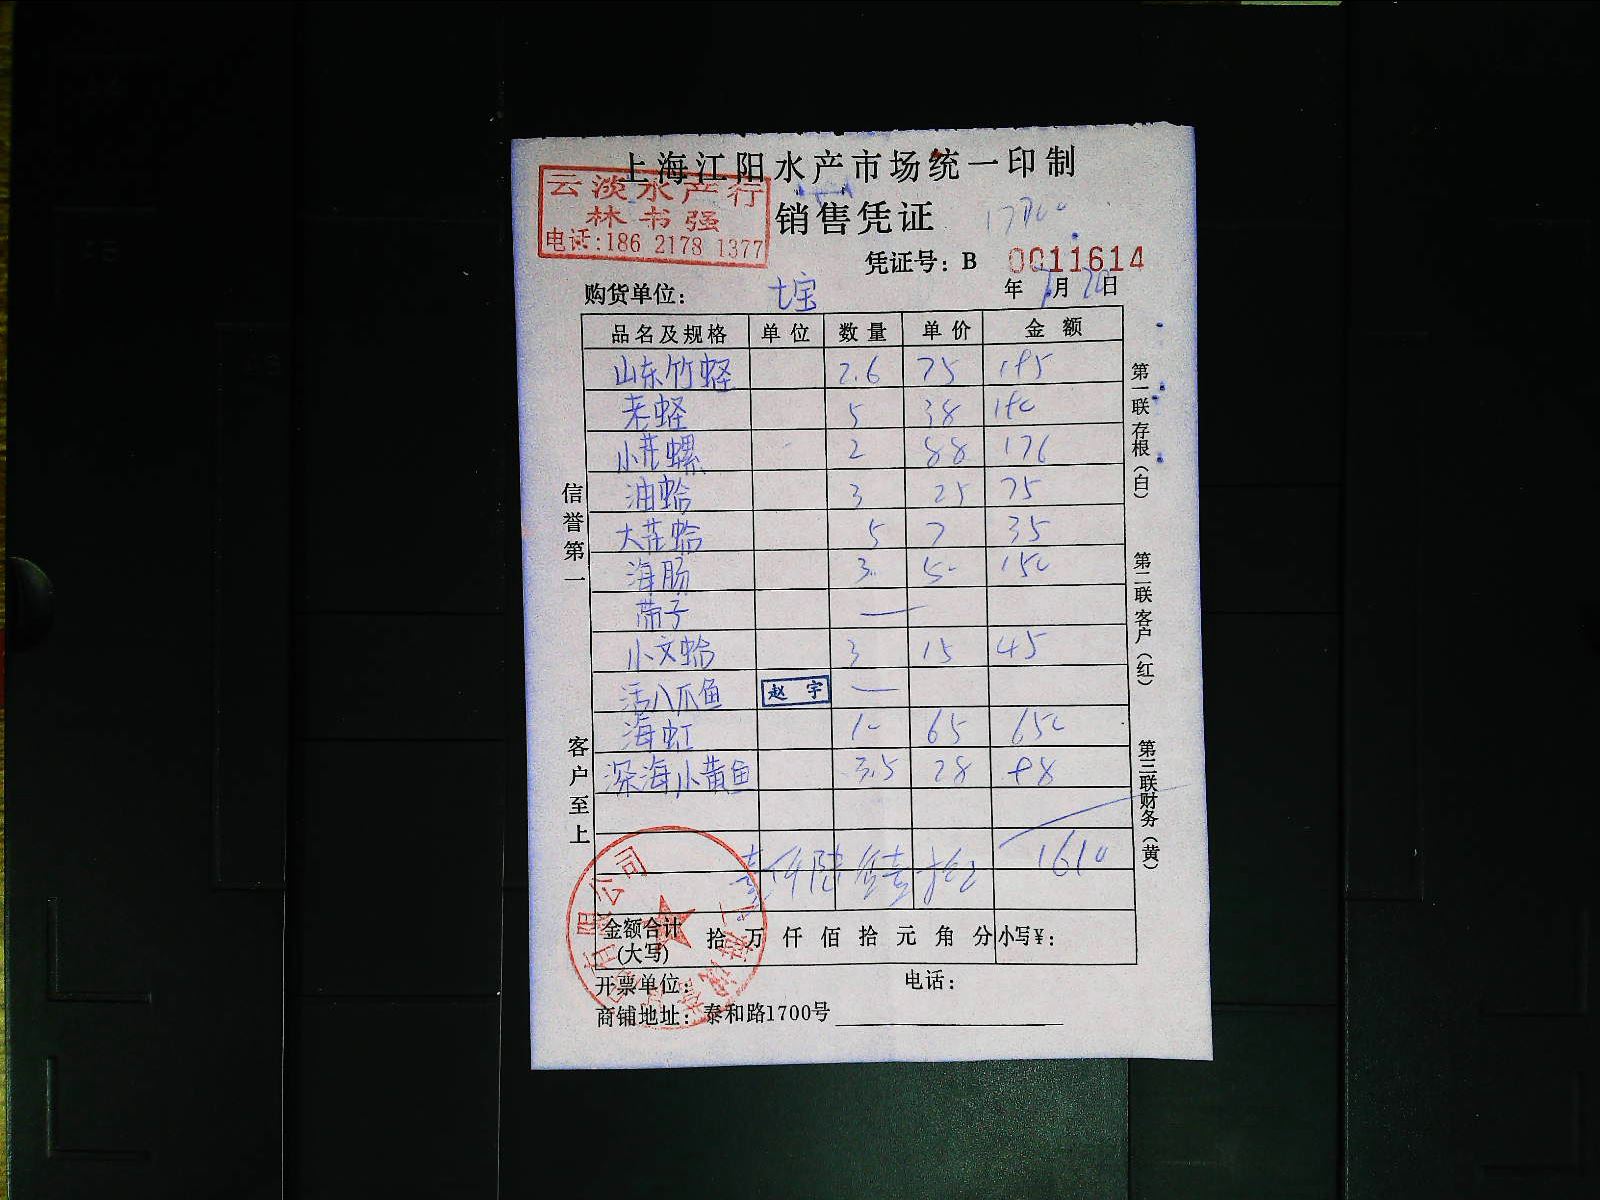 上海江阳水产市场统一印制
云淡水产行
林书强
电话:186 2178 1377
销售凭证
凭证号：B 0011614
购货单位： 七宝
年 7月 20日
品名及规格 单位 数量 单价 金额
山东竹蛏 2.6 75 195
老蛏 5 38 190
小花螺 2 88 176
油蛤 3 25 75
大花蛤 5 7 35
海肠 3 50 150
带子 —
小文蛤 3 15 45
活八爪鱼 赵宇 —
海虹 10 65 650
深海小黄鱼 3.5 28 98
壹仟陆 壹拾 1610
金额合计(大写) 拾 万 仟 佰 拾 元 角 分 小写¥：
开票单位： 电话：
商铺地址：泰和路1700号
信誉第一
客户至上
第一联存根（白）
第二联客户（红）
第三联财务（黄）
有限公司